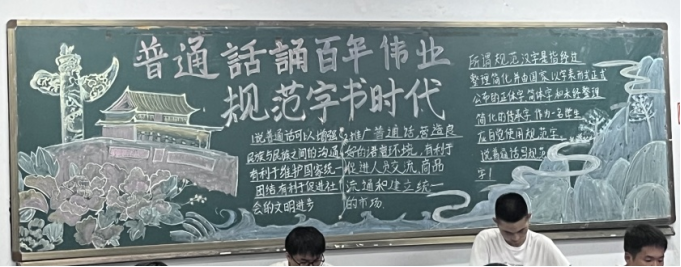 普通話誦百年伟业
规范字书时代
说普通话可以增强
民族与民族之间的沟通
有利于维护国家统一
团结有利于促进社
会的文明进步
推广普通话营造良
好的语言环境，有利于
促进人员交流，商品
流通和建立统一
的市场
所谓规范汉字是指经过
整理简化并由国家以字表形式正式
公布的正体字、简体字和未经整理
简化的传承字，作为一名学生
应自觉使用规范字。
说普通话写规范
字！